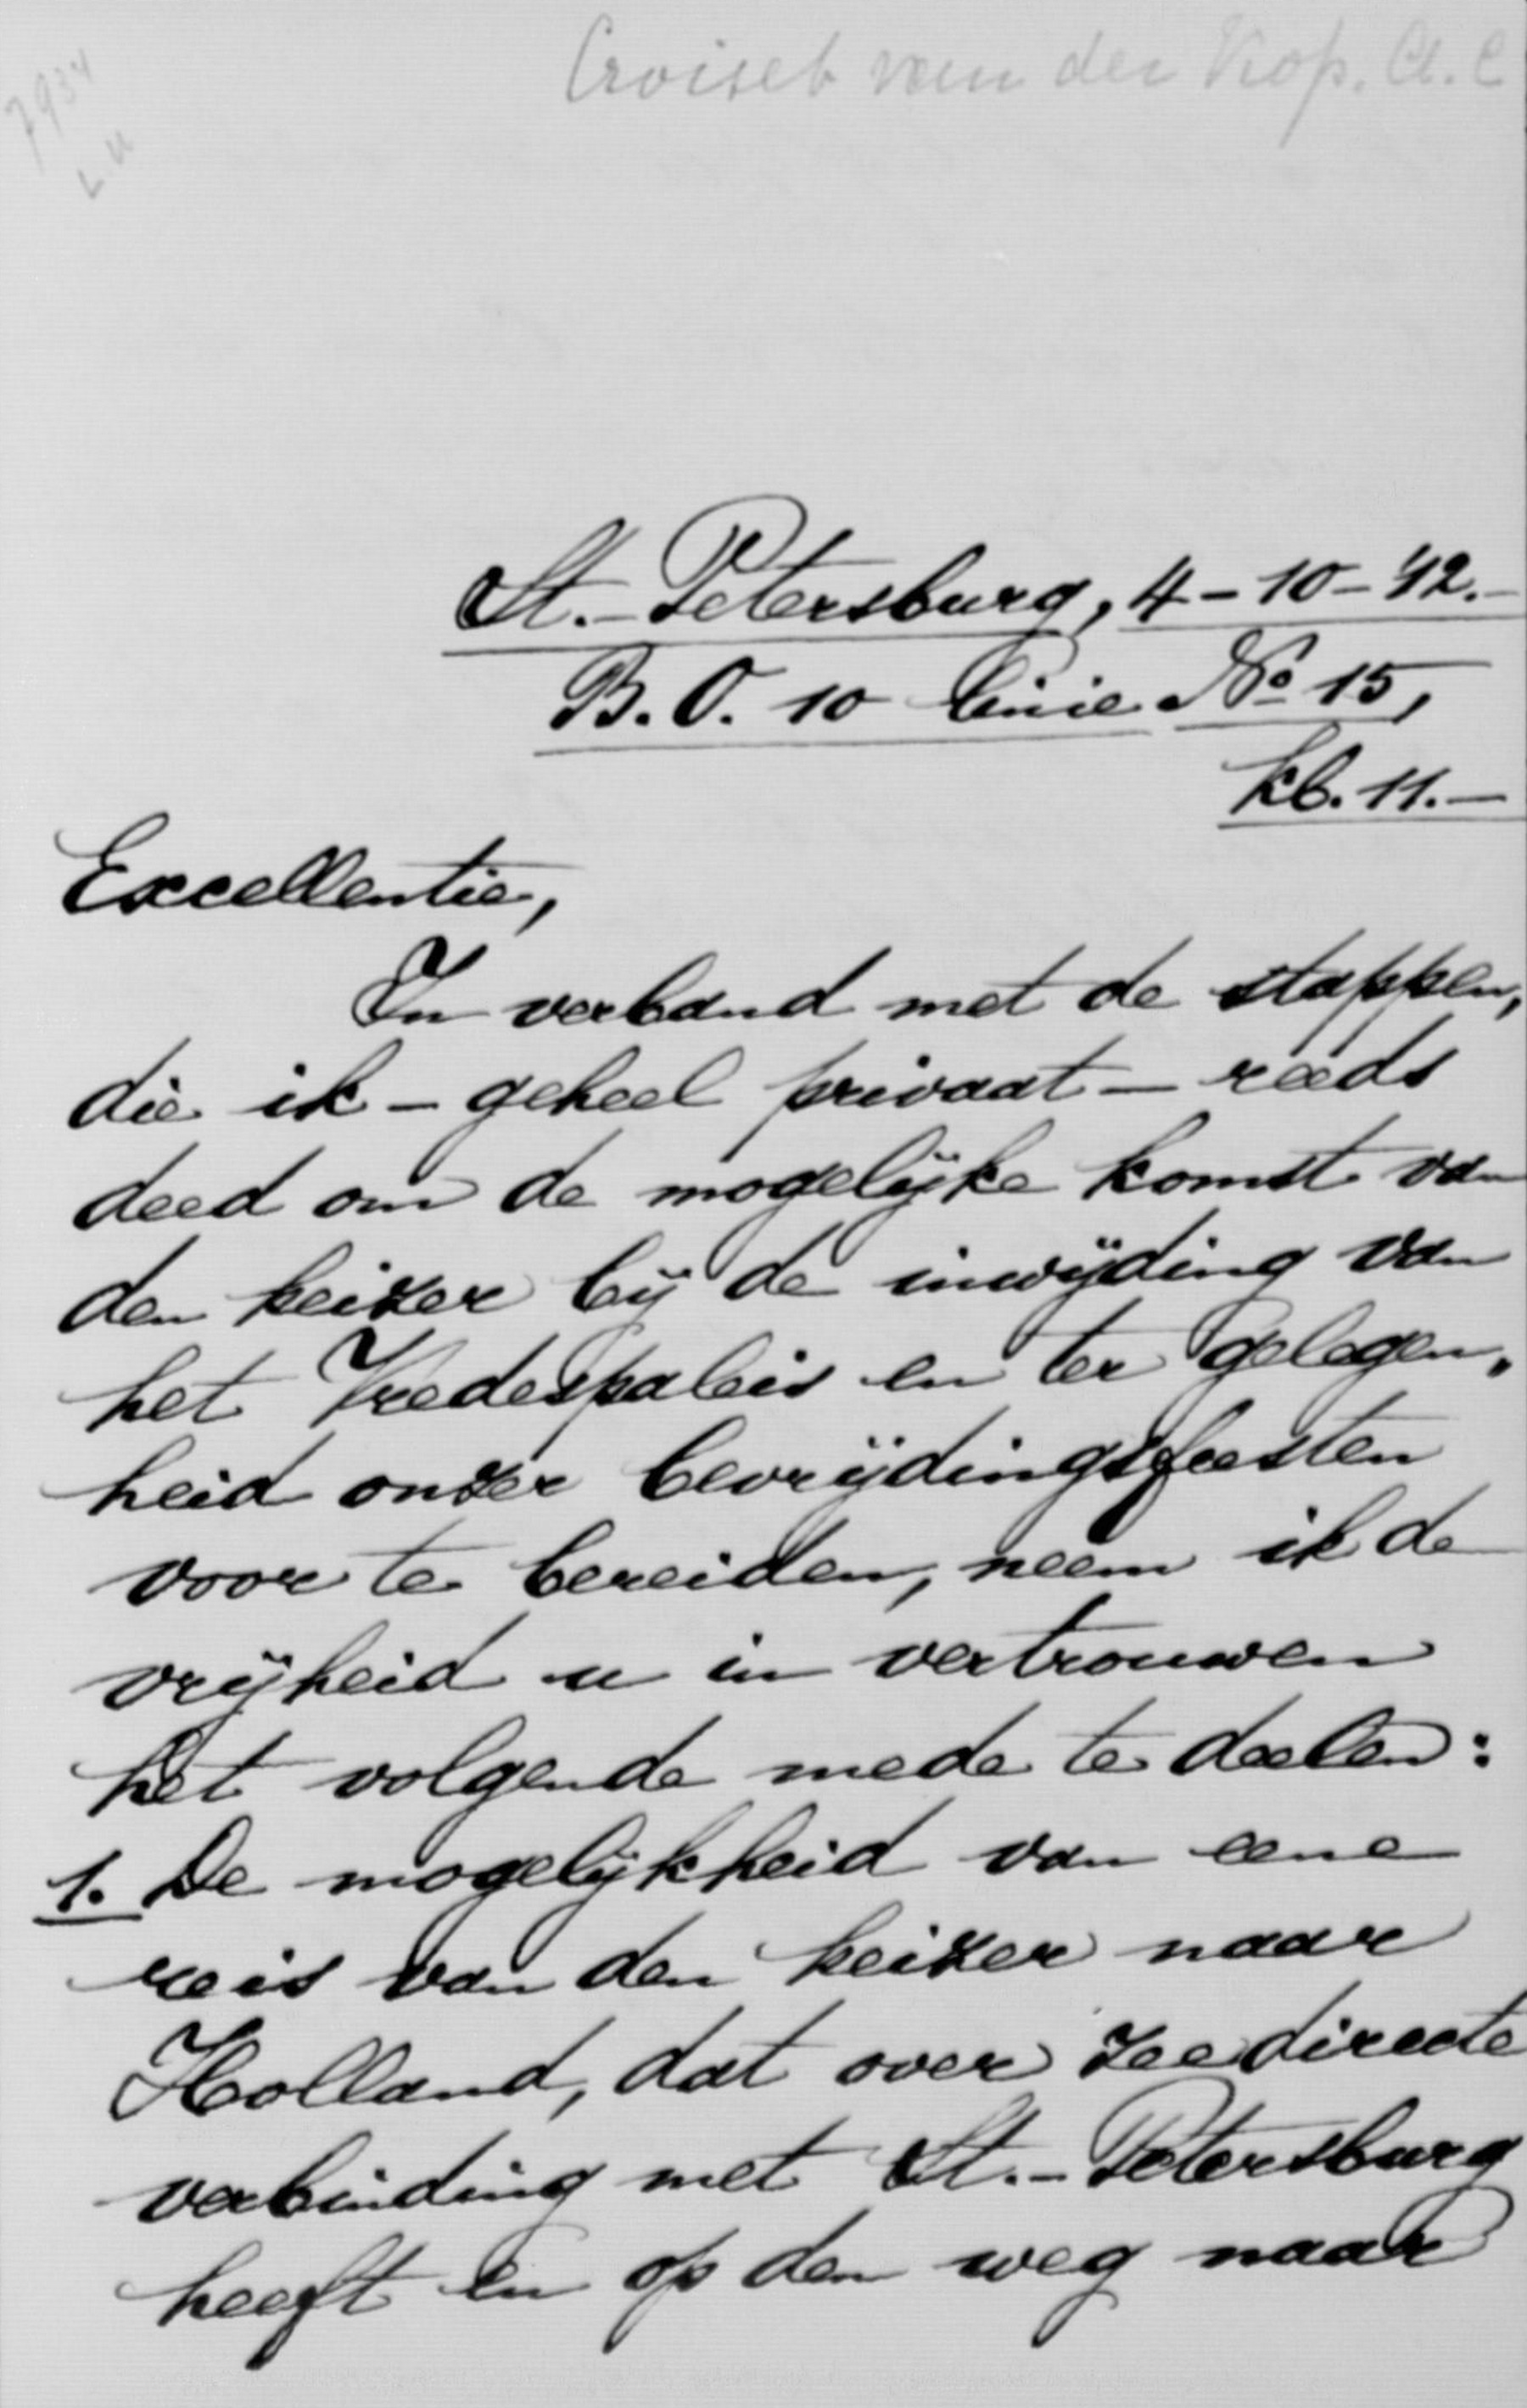 Croiset van der Kop. A. C
7934
L U
St.-Petersburg, 4-10-'12.-
B.O. 10 linie No 15,
kb. 11.-
Excellentie,
In verband met de stappen,
die ik - geheel privaat - reeds
deed om de mogelijke komst van
den keizer bij de inwijding van
het Vredespaleis en ter gelegen„
heid onzer bevrijdingsfeesten
voor te bereiden, neem ik de
vrijheid u in vertrouwen
het volgende mede te deelen:
1. De mogelijkheid van eene
reis van den keizer naar
Holland, dat over zee directe
verbinding met St.-Petersburg
heeft en op den weg naar